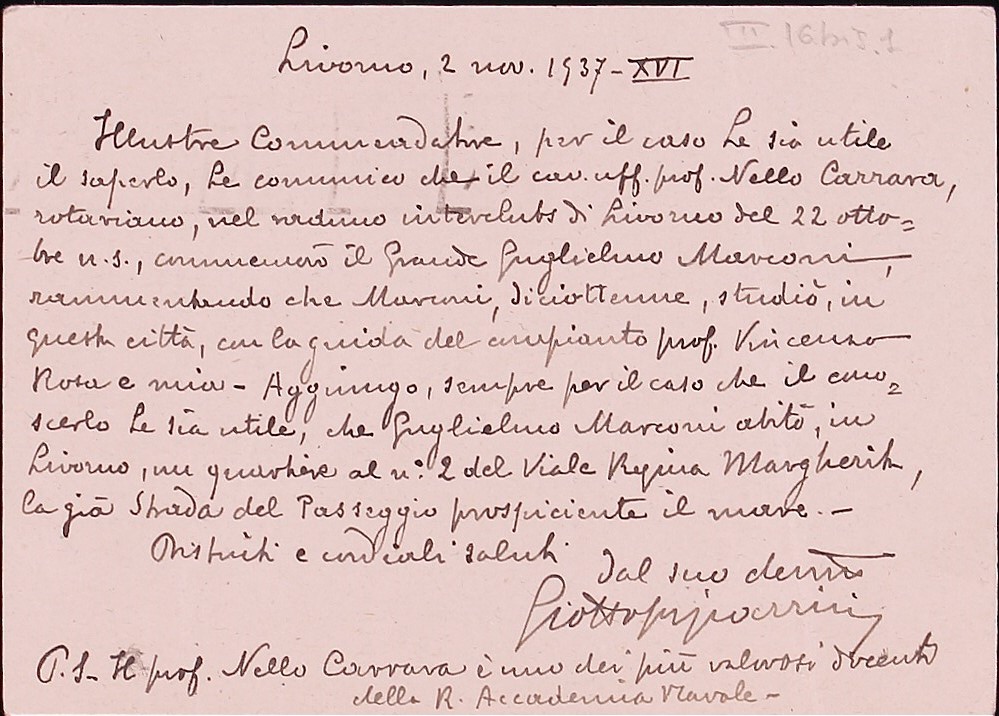 II.16bis.1
Livorno, 2 nov. 1937-XVI
Illustre Commendatore, per il caso Le sia utile
il saperlo, Le comunico che il cav. uff. prof. Nello Carrara,
rotariano, nel raduno interclubs di Livorno del 22 otto=
bre u.s., commemorò il Grande Guglielmo Marconi,
rammentando che Marconi, diciottenne, studiò, in
questa città, con la guida del compianto prof. Vincenzo
Rosa e mia - Aggiungo, sempre per il caso che il cono=
scerlo Le sia utile, che Guglielmo Marconi abitò, in
Livorno, un quartiere al n.° 2 del Viale Regina Margherita,
la già Strada del Passeggio prospiciente il mare. -
Distinti e cordiali saluti
dal suo devmo
P.S- Il prof. Nello Carrara è uno dei più valorosi docenti
della R. Accademia Navale -